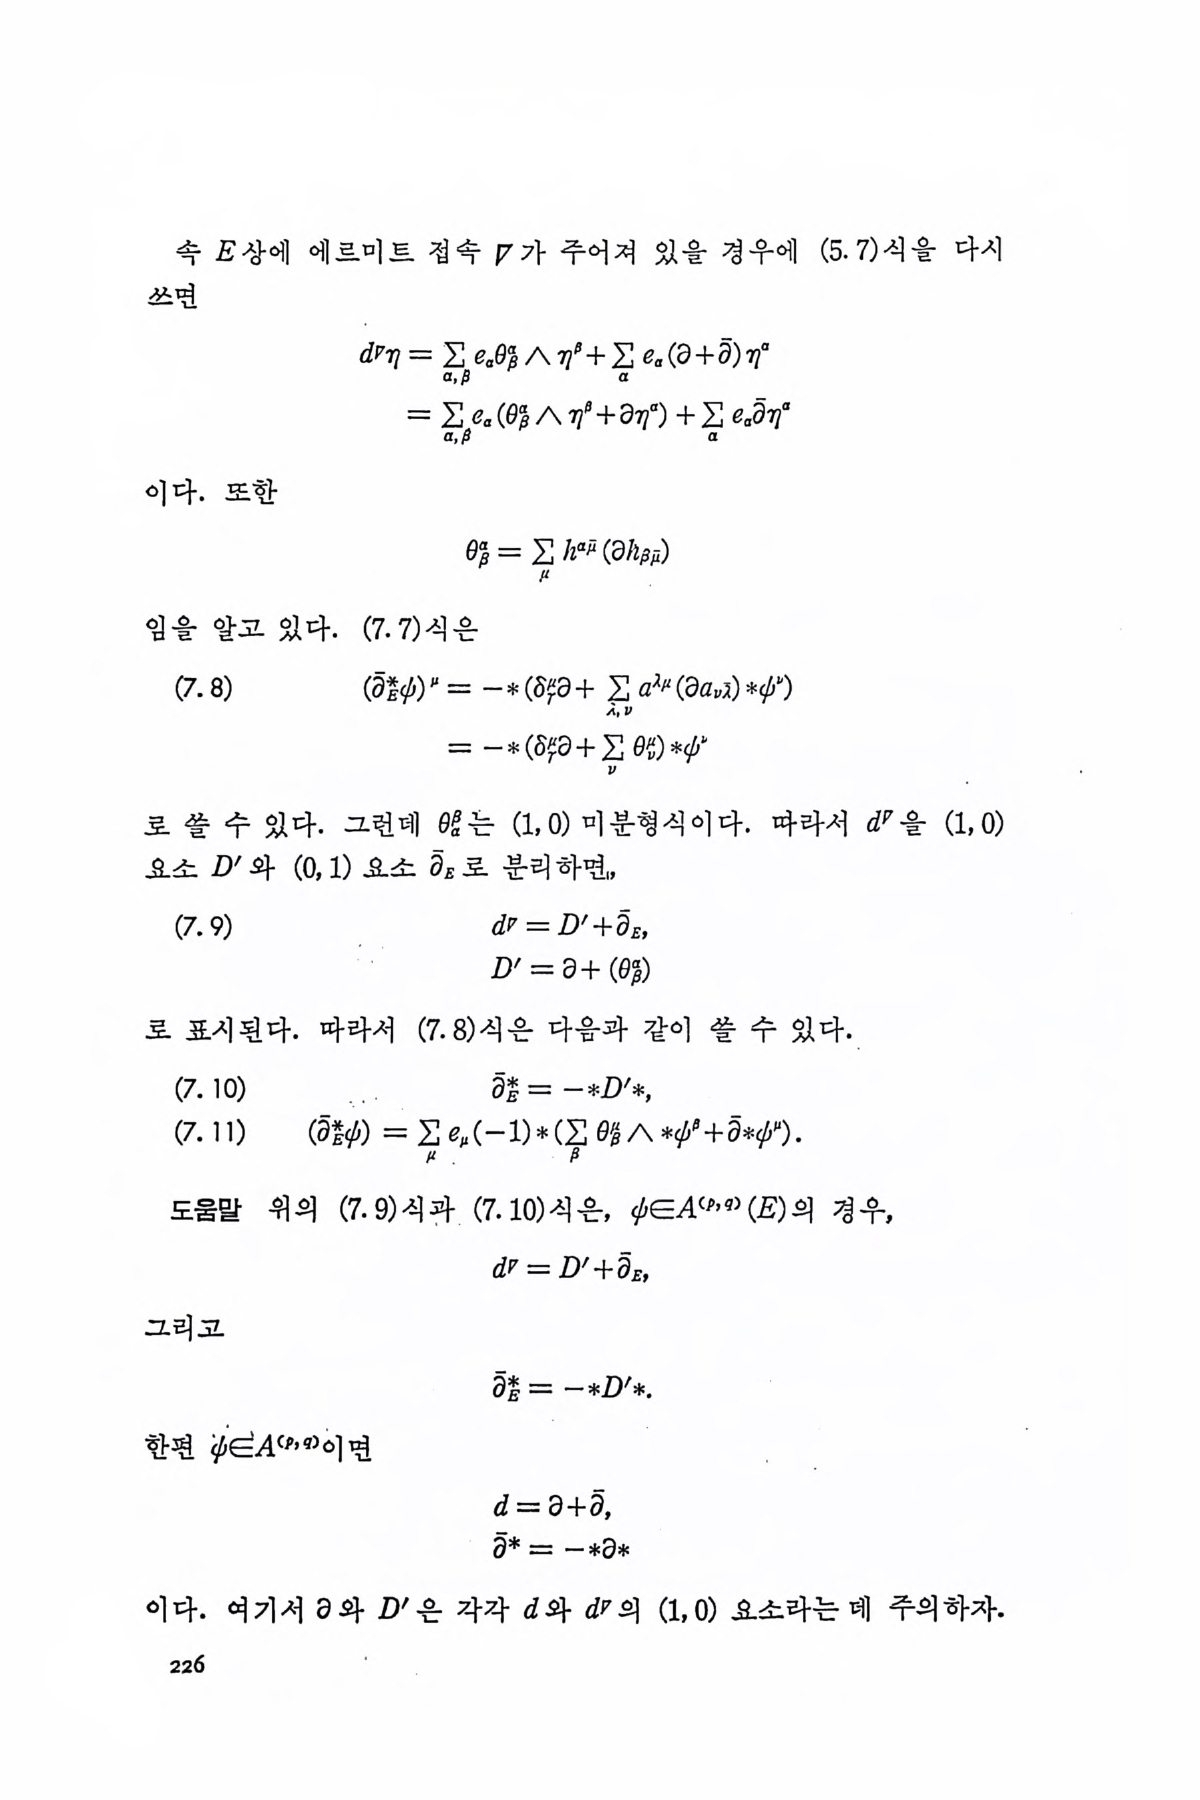 속 E상에 에르미트 접속 ∇가 주어져 있을 경우에 (5.7)식을 다시
쓰면
d^∇η = ∑_{α,β} e_α θ^α_β ∧ η^β + ∑_α e_α (∂+∂̄) η^α
= ∑_{α,β} e_α (θ^α_β ∧ η^β + ∂η^α) + ∑_α e_α ∂̄η^α
이다. 또한
θ^α_β = ∑_μ h^{αμ̄} (∂h_{βμ̄})
임을 알고 있다. (7.7)식은
(7.8) (∂̄*_E ψ)^μ = −*(δ^μ_γ ∂ + ∑_{λ,ν} a^{λ̄μ} (∂a_{νλ̄}) *ψ^ν)
= −*(δ^μ_γ ∂ + ∑_ν θ^μ_ν) *ψ^ν
로 쓸 수 있다. 그런데 θ^β_α는 (1,0) 미분형식이다. 따라서 d^∇을 (1,0)
요소 D′와 (0,1) 요소 ∂̄_E로 분리하면,
(7.9) d^∇ = D′+∂̄_E,
D′ = ∂ + (θ^α_β)
로 표시된다. 따라서 (7.8)식은 다음과 같이 쓸 수 있다.
(7.10) ∂̄*_E = −*D′*,
(7.11) (∂̄*_E ψ) = ∑_μ e_μ (−1) * (∑_β θ^μ_β ∧ *ψ^β + ∂̄*ψ^μ).
도움말 위의 (7.9)식과 (7.10)식은, ψ∈A^{(p,q)}(E)의 경우,
d^∇ = D′+∂̄_E,
그리고
∂̄*_E = −*D′*.
한편 ψ∈A^{(p,q)}이면
d = ∂+∂̄,
∂̄* = −*∂*
이다. 여기서 ∂와 D′은 각각 d와 d^∇의 (1,0) 요소라는데 주의하자.
226